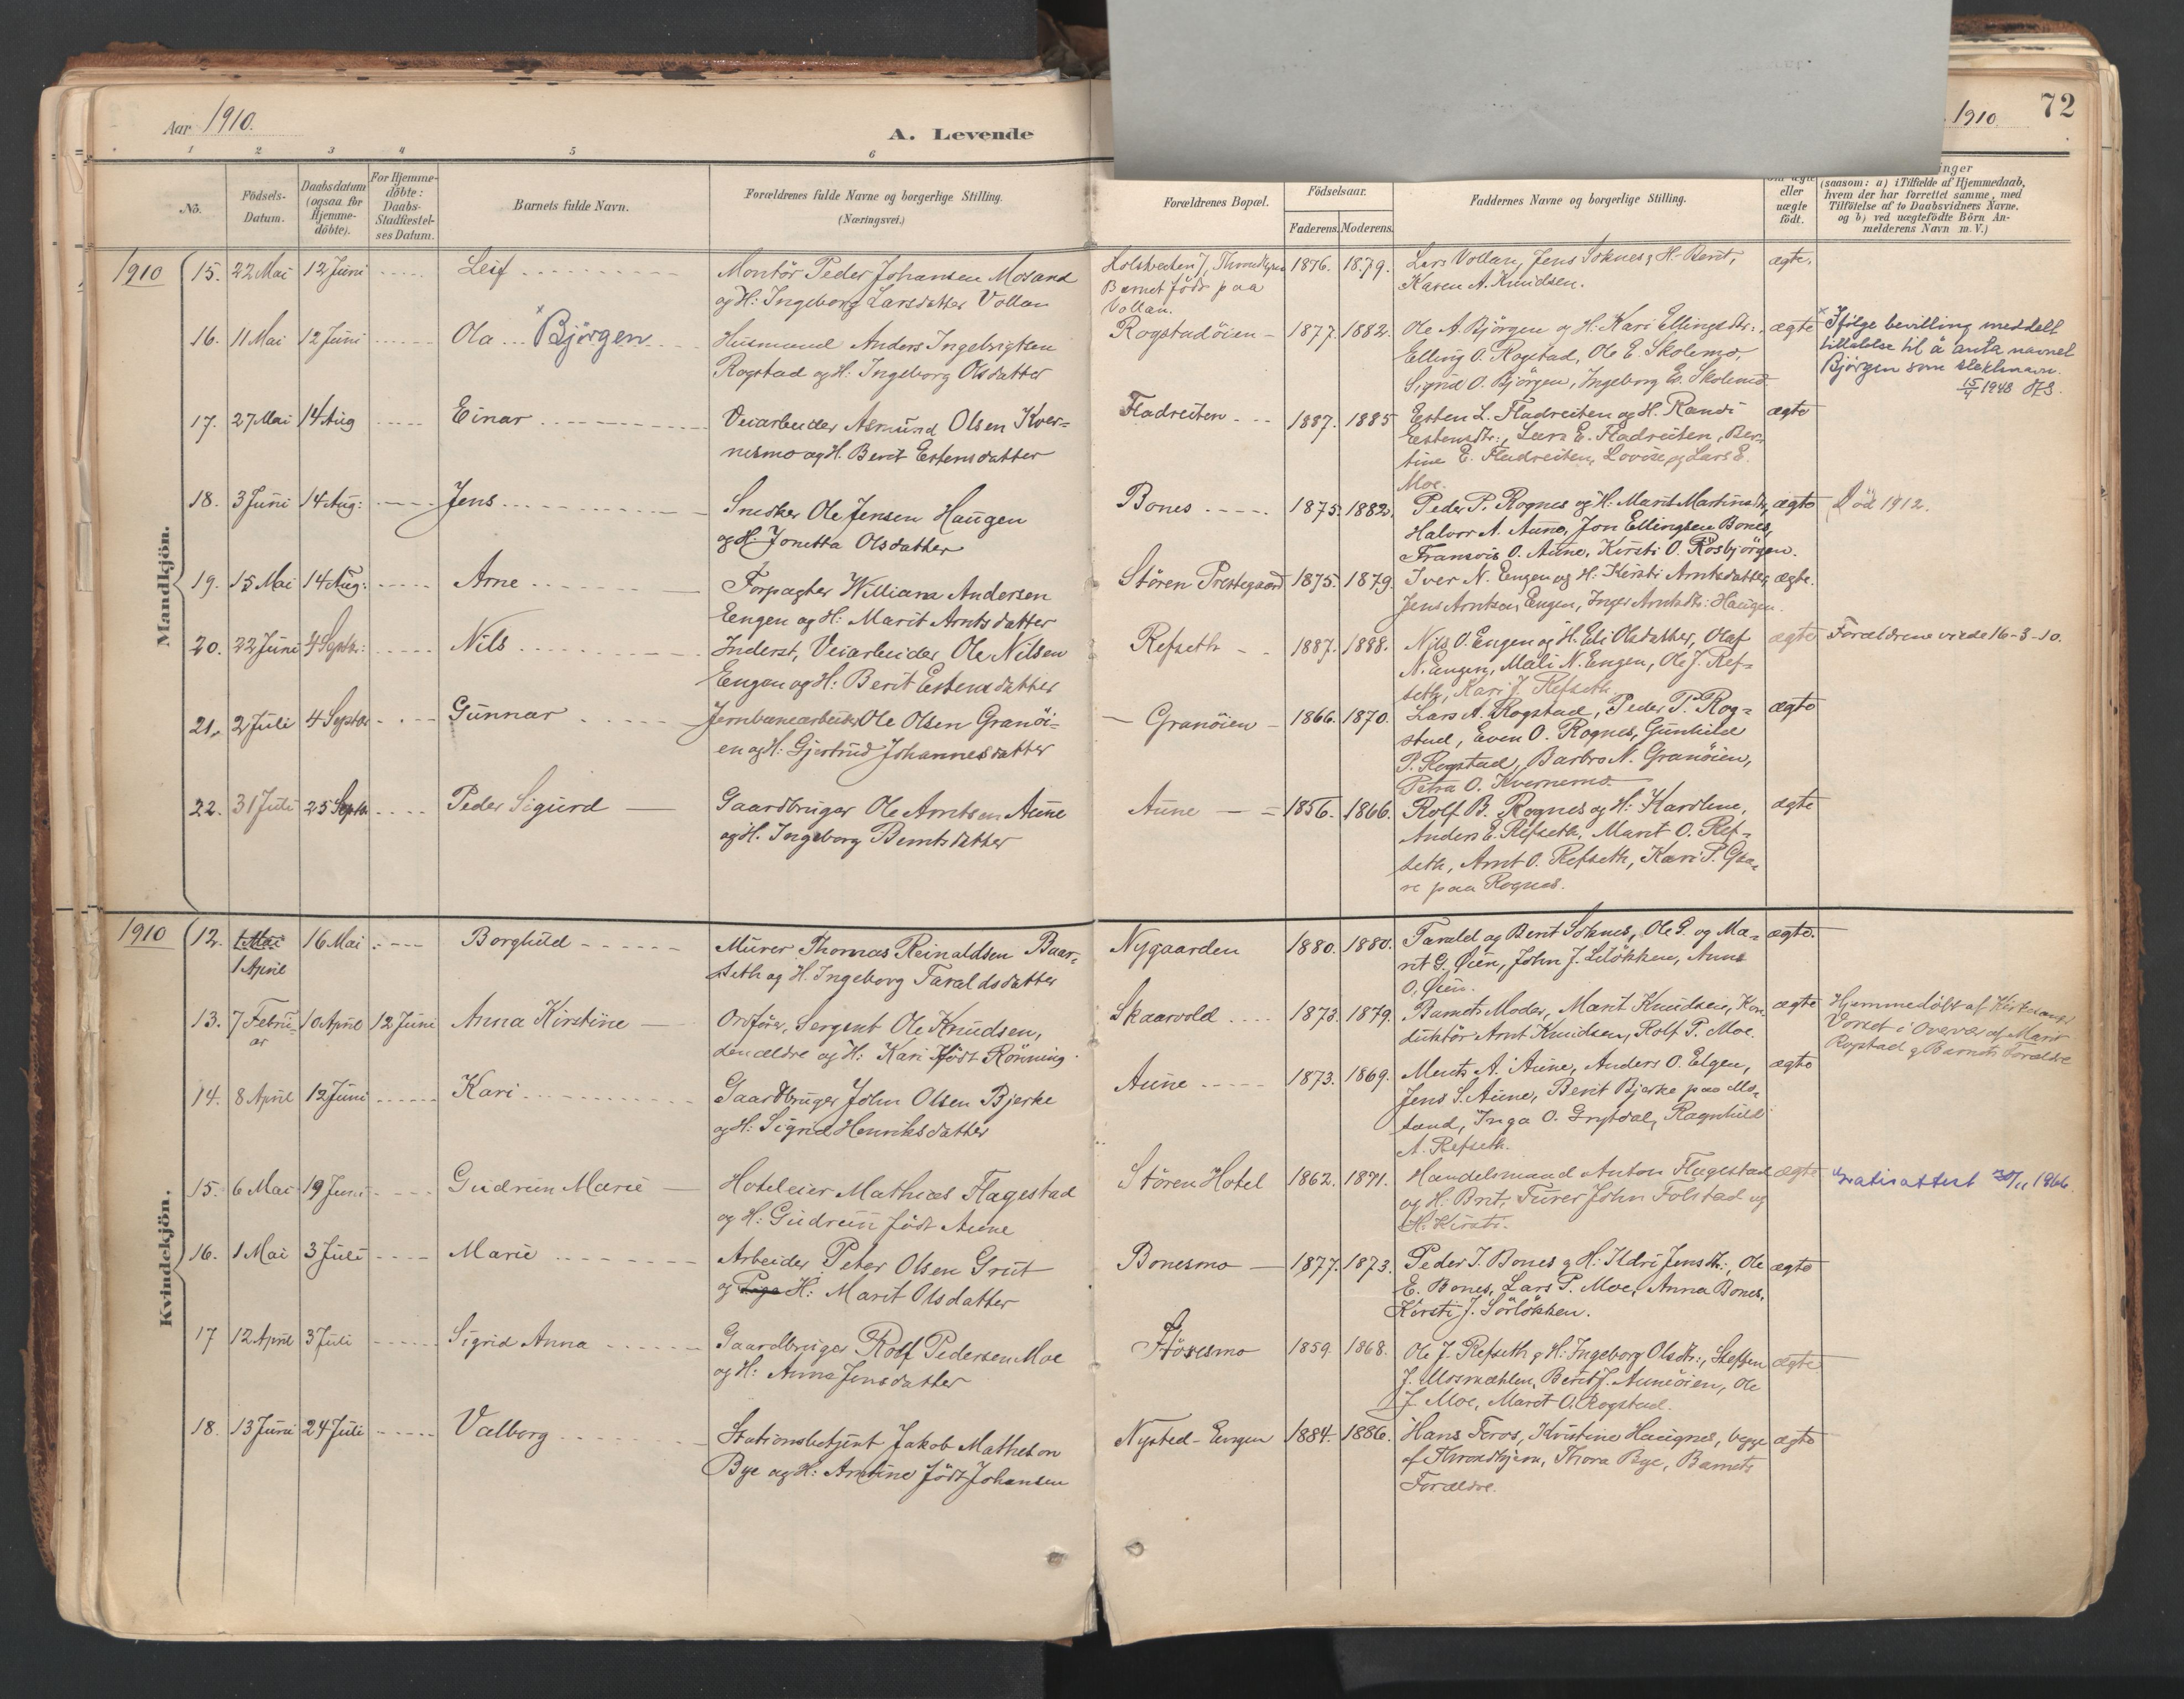 Aar 1910.
A. Levende
1910. 72
1 2 3 4 5 6
No.
Födsels-
Datum.
Daabsdatum
(ogsaa for
Hjemme-
döbte).
For Hjemme-
döbte:
Daabs-
Stadfæstel-
ses Datum.
Barnets fulde Navn.
Forældrenes fulde Navne og borgerlige Stilling.
(Næringsvei.)
Forældrenes Bopæl.
Födselsaar.
Faderens. Moderens.
Faddernes Navne og borgerlige Stilling.
eller
uægte
födt.
inger
(saasom: a) i Tilfælde af Hjemmedaab,
hvem der har forrettet samme, med
Tilföielse af to Daabsvidners Navne,
og b) ved uægtefödte Börn An-
melderens Navn m. V.)
Mandkjön.
1910 15. 22 Mai 12 Juni Leif Montör Peder Johansen Mosand 1876. 1879. Lars Vollan, Jens Soknes, H. Berit, ægte.
og H: Ingeborg Larsdatter Vollan Barnet födt paa Karen A. Knudsen.
Vollan.
16. 11 Mai 12 Juni Ola × Björgen Husmand Anders Ingebrigtsen Rogstadöien 1877. 1882. Ole A. Björgen og H. Kari Ellingsdtr:, ægte × Ifølge bevilling meddelt
Rogstad og H: Ingeborg Olsdatter Elling O. Rogstad, Ole E. Skolemo, tillatelse til å anta navnet
Sigrid O. Björgen, Ingeborg E. Skolemo Björgen som slektsnavn.
1948
17. 27 Mai 14 Aug Einar Veiarbeider Asmund Olsen Kver- Fladreiten 1887. 1885 Esten L. Fladreiten og H. Randi ægte
nesmo og H. Berit Estensdatter Estensdtr:, Lars E. Fladreiten, Ber-
tine E. Fladreiten, Lovise og Lars E.
Moe.
18. 3 Juni 14 Aug: Jens Snedker Ole Jensen Haugen Bones 1875. 1882. Peder P. Rognes og H: Marit ægte Död 1912.
og H: Jonetta Olsdatter Halvor A. Aune, Jon Ellingsen Bones,
O. Aune, Kirsti O. Rösbjörgen.
19. 15 Mai 14 Aug: Arne Forpagter William Andersen Stören Prestegaard 1875. 1879. Iver N. Engen og H: Kirsti Arntsdatter, ægte.
Engen og H: Marit Arntsdatter Jens Arntsen Engen, Inger Arntsdtr: Haugen.
20. 22 Juni 4 Septbr: Nils Inderst, Veiarbeider Ole Nilsen Refseth 1887. 1888. Nils O. Engen og H. Eli Olsdatter, Olaf ægte Forældrene viede 16-3-10.
Engen og H: Berit Estensdatter N. Engen, Mali N. Engen, Ole J. Ref-
seth, Kari J. Refseth
21. 2 Juli 4 Septbr Gunnar Jernbanearbeider Ole Olsen Granöi- Granöien 1866. 1870. Lars A. Rogstad, Peder P. Rog- ægte
en og H: Gjertrud Johannesdatter stad, Even O. Rognes, Gunhild
P. Rogstad, Barbro N. Granöien,
Petra O. Kvernmo.
22. 31 Juli 25 Septbr Peder Sigurd Gaardbruger Ole Arntsen Aune Aune 1856. 1866. Rolf B. Rognes og H: Karoline, ægte
og H. Ingeborg Berntsdatter Anders E. Refseth, Marit O. Ref-
seth, Arnt O. Refseth, Kari P. Gaa-
re paa Rognes.
Kvindekjön.
1910 12. 1 Mai 16 Mai Borghild Murer Thomas Reinaldsen Baar- Nygaarden 1880. 1880. Tarald og Berit Soknes, Ole G. og Ma- ægte.
1 April seth og H. Ingeborg Taraldsdatter rit G. Øien, John J. Liløkken, Anne
O. Øien.
13. 7 Febru- 10 April 12 Juni Anna Kirstine Ordförer, Sergent Ole Knudsen, Skaarvold 1873. 1879. Barnets Moder, Marit Knudsen, Kon- ægte Hjemmedöbt af Kirkesanger
ar den ældre og H: Kari födt Rönning duktör Arnt Knudsen, Rolf P. Moe. Vorset i Overvær af Marit
Rogstad og Barnets Forældre
14. 8 April 12 Juni Kari Gaardbruger John Olsen Bjerke Aune 1873. 1869. Ments A. Aune, Anders O. Elgen, ægte
og H: Sigrid Henriksdatter Jens S. Aune, Berit Bjerke paa Mo-
sand, Inga O. Grytdal, Ragnhild
A. Refseth.
15. 6 Mai 19 Juni Gudrun Marie Hoteleier Mathias Flagestad Stören Hotel 1862. 1871. Handelsmand Anton Flagestad ægte Gratisattest 30/11 1966.
og H: Gudrun födt Aune og H: Brit, Furer John Folstad og
H: Kirsti.
16. 1 Mai 3 Juli Marie Arbeider Peter Olsen Grut Bonesmo 1877. 1873. Peder J. Bones og H: Ildri Jensdtr:, Ole ægte
og Pige H: Marit Olsdatter E. Bones, Lars P. Moe, Anna Bones,
Kirsti J. Sörlökken.
17 12 April 3 Juli Sigrid Anna Gaardbruger Rolf Pedersen Moe 1859. 1868. Ole J. Refseth og H: Ingeborg Olsdtr:, Steffen ægte
og H: Anne Jensdatter J. Mosmæhlen, Berit J. Auneöien, Ole
J. Moe, Marit O. Rogstad.
18. 13 Juni 24 Juli Valborg Stationsbetjent Jakob Matheson Nysted-Engen 1884. 1886. Hans Feros, Kristine Haugnes, begge ægte
Bye og H: Arntine födt Johansen af Throndhjem, Thora Bye, Barnets
Forældre.